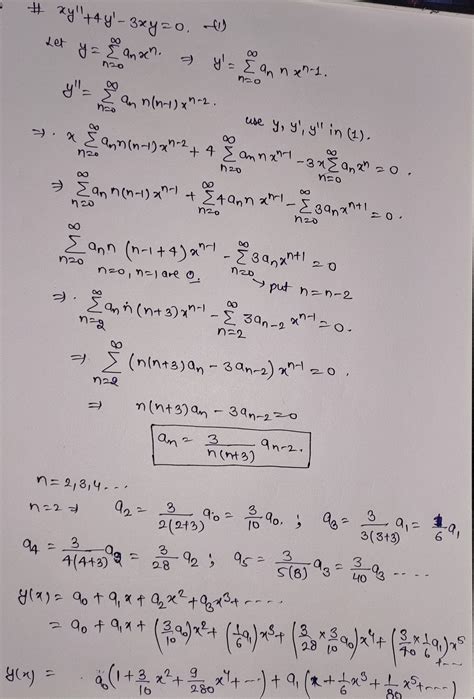 # xy''+4y'-3xy=0. -(1)
Let y=∑_{n=0}^{∞} a_n x^n. ⇒ y'=∑_{n=0}^{∞} a_n n x^{n-1}.
y''=∑_{n=0}^{∞} a_n n(n-1) x^{n-2}.
use y, y', y'' in (1).
⇒. x∑_{n=0}^{∞} a_n n(n-1) x^{n-2} + 4∑_{n=0}^{∞} a_n n x^{n-1} - 3x∑_{n=0}^{∞} a_n x^n = 0.
⇒ ∑_{n=0}^{∞} a_n n(n-1) x^{n-1} + ∑_{n=0}^{∞} 4a_n n x^{n-1} - ∑_{n=0}^{∞} 3a_n x^{n+1} = 0.
∑_{n=0}^{∞} a_n n (n-1+4) x^{n-1} - ∑_{n=0}^{∞} 3a_n x^{n+1} = 0
n=0, n=1 are 0. ↳ put n=n-2
⇒. ∑_{n=2}^{∞} a_n n(n+3) x^{n-1} - ∑_{n=2}^{∞} 3a_{n-2} x^{n-1} = 0.
⇒ ∑_{n=2}^{∞} (n(n+3)a_n - 3a_{n-2}) x^{n-1} = 0.
⇒ n(n+3)a_n - 3a_{n-2} = 0
a_n = 3/n(n+3) a_{n-2}.
n=2,3,4...
n=2 ⇒ a_2 = 3/2(2+3) a_0 = 3/10 a_0. ; a_3 = 3/3(3+3) a_1 = 1/6 a_1
a_4 = 3/4(4+3) a_2 = 3/28 a_2 ; a_5 = 3/5(8) a_3 = 3/40 a_3 ....
y(x) = a_0 + a_1x + a_2x^2 + a_3x^3 + ....
= a_0 + a_1x + (3/10 a_0)x^2 + (1/6 a_1)x^3 + (3/28 × 3/10 a_0)x^4 + (3/40 × 1/6 a_1)x^5 + ...
y(x) = a_0(1 + 3/10 x^2 + 9/280 x^4 + ..) + a_1(x + 1/6 x^3 + 1/80 x^5 + ...)